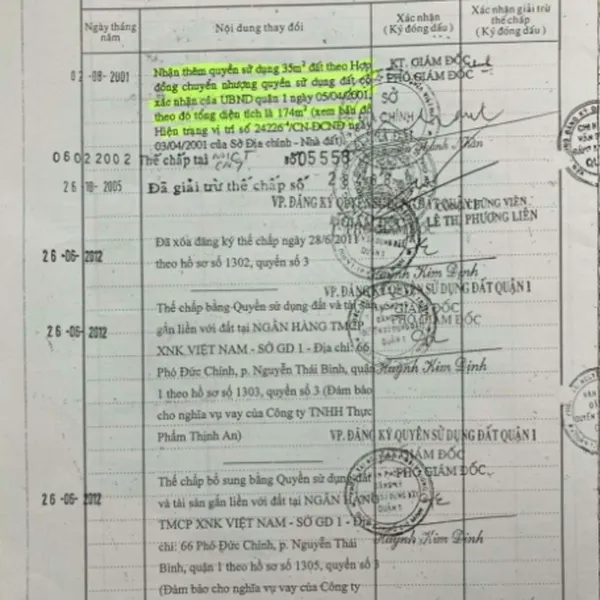 Ngày tháng năm
Nội dung thay đổi
Xác nhận
(Ký đóng dấu)
Xác nhận giải trừ thế chấp
(Ký đóng dấu)
02-08-2001
Nhận thêm quyền sử dụng 35m² đất theo Hợp
đồng chuyển nhượng quyền sử dụng đất có
xác nhận của UBND quận 1 ngày 05/04/2001,
theo đó tổng diện tích là 174m² (xem bản đồ
Hiện trạng vị trí số 24226 /CN-ĐCNĐ ngày
03/04/2001 của Sở Địa chính - Nhà đất).
KT. GIÁM ĐỐC
PHÓ GIÁM ĐỐC
SỞ
CHÍNH
06 02 2002 Thế chấp tại
26-10-2005 Đã giải trừ thế chấp số
VP. ĐĂNG KÝ QUYỀN SỬ DỤNG ĐẤT
CHỨNG VIÊN
LÊ THỊ PHƯƠNG LIÊN
26-06-2012
Đã xóa đăng ký thế chấp ngày 28/6/2011
theo hồ sơ số 1302, quyển số 3
Huỳnh Kim Định
VP. ĐĂNG KÝ QUYỀN SỬ DỤNG ĐẤT QUẬN 1
GIÁM ĐỐC
PHÓ GIÁM ĐỐC
26-06-2012
Thế chấp bằng Quyền sử dụng đất và tài sản
gắn liền với đất tại NGÂN HÀNG TMCP
XNK VIỆT NAM - SỞ GD 1 - Địa chỉ: 66
Phó Đức Chính, p. Nguyễn Thái Bình, quận
1 theo hồ sơ số 1303, quyển số 3 (Đảm bảo
cho nghĩa vụ vay của Công ty TNHH Thực
Phẩm Thịnh An)
Huỳnh Kim Định
VP. ĐĂNG KÝ QUYỀN SỬ DỤNG ĐẤT QUẬN 1
GIÁM ĐỐC
PHÓ GIÁM ĐỐC
26-06-2012
Thế chấp bổ sung bằng Quyền sử dụng đất
và tài sản gắn liền với đất tại NGÂN HÀNG
TMCP XNK VIỆT NAM - SỞ GD 1 - Địa
chỉ: 66 Phó Đức Chính, p. Nguyễn Thái
Bình, quận 1 theo hồ sơ số 1305, quyển số 3
(Đảm bảo cho nghĩa vụ vay của Công ty
Huỳnh Kim Định